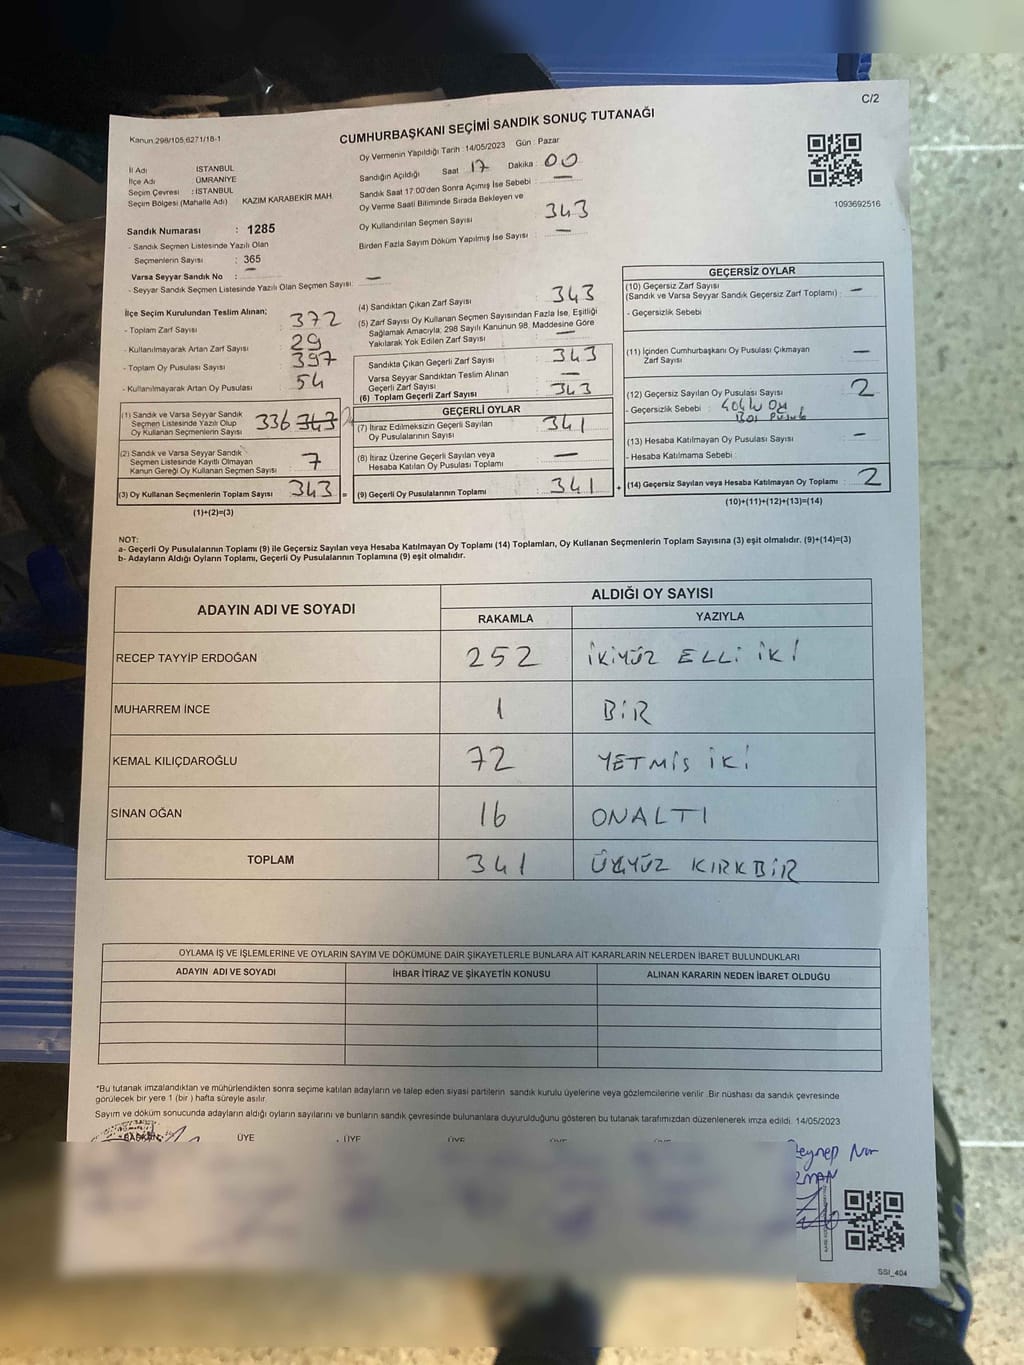 C/2
Kanun.298/105,6271/18-1
CUMHURBAŞKANI SEÇİMİ SANDIK SONUÇ TUTANAĞI
İl Adı İSTANBUL
İlçe Adı ÜMRANİYE
Seçim Çevresi : İSTANBUL
Seçim Bölgesi (Mahalle Adı) KAZIM KARABEKİR MAH.
Sandık Numarası : 1285
- Sandık Seçmen Listesinde Yazılı Olan
Seçmenlerin Sayısı : 365
Varsa Seyyar Sandık No : —
- Seyyar Sandık Seçmen Listesinde Yazılı Olan Seçmen Sayısı: —
Oy Vermenin Yapıldığı Tarih : 14/05/2023 Gün : Pazar
Sandığın Açıldığı Saat 17 Dakika : 00
Sandık Saat 17:00'den Sonra Açımış İse Sebebi : —
Oy Verme Saati Bitiminde Sırada Bekleyen ve
Oy Kullandırılan Seçmen Sayısı 343
Birden Fazla Sayım Döküm Yapılmış İse Sayısı : —
1093692516
İlçe Seçim Kurulundan Teslim Alınan;
- Toplam Zarf Sayısı 372
- Kullanılmayarak Artan Zarf Sayısı : 29
- Toplam Oy Pusulası Sayısı : 397
- Kullanılmayarak Artan Oy Pusulası : 54
(1) Sandık ve Varsa Seyyar Sandık
Seçmen Listesinde Yazılı Olup
Oy Kullanan Seçmenlerin Sayısı 336 343
(2) Sandık ve Varsa Seyyar Sandık
Seçmen Listesinde Kayıtlı Olmayan
Kanun Gereği Oy Kullanan Seçmen Sayısı : 7
(3) Oy Kullanan Seçmenlerin Toplam Sayısı : 343 =
(1)+(2)=(3)
(4) Sandıktan Çıkan Zarf Sayısı : 343
(5) Zarf Sayısı Oy Kullanan Seçmen Sayısından Fazla İse, Eşitliği
Sağlamak Amacıyla, 298 Sayılı Kanunun 98. Maddesine Göre
Yakılarak Yok Edilen Zarf Sayısı : —
Sandıkta Çıkan Geçerli Zarf Sayısı : 343
Varsa Seyyar Sandıktan Teslim Alınan
Geçerli Zarf Sayısı : —
(6) Toplam Geçerli Zarf Sayısı : 343
GEÇERLİ OYLAR
(7) İtiraz Edilmeksizin Geçerli Sayılan
Oy Pusulalarının Sayısı : 341
(8) İtiraz Üzerine Geçerli Sayılan veya
Hesaba Katılan Oy Pusulası Toplamı : —
(9) Geçerli Oy Pusulalarının Toplamı : 341 +
GEÇERSİZ OYLAR
(10) Geçersiz Zarf Sayısı
(Sandık ve Varsa Seyyar Sandık Geçersiz Zarf Toplamı) : —
- Geçersizlik Sebebi
(11) İçinden Cumhurbaşkanı Oy Pusulası Çıkmayan
Zarf Sayısı : —
(12) Geçersiz Sayılan Oy Pusulası Sayısı : 2
- Geçersizlik Sebebi :
(13) Hesaba Katılmayan Oy Pusulası Sayısı : —
- Hesaba Katılmama Sebebi :
(14) Geçersiz Sayılan veya Hesaba Katılmayan Oy Toplamı : 2
(10)+(11)+(12)+(13)=(14)
NOT:
a- Geçerli Oy Pusulalarının Toplamı (9) ile Geçersiz Sayılan veya Hesaba Katılmayan Oy Toplamı (14) Toplamları, Oy Kullanan Seçmenlerin Toplam Sayısına (3) eşit olmalıdır. (9)+(14)=(3)
b- Adayların Aldığı Oyların Toplamı, Geçerli Oy Pusulalarının Toplamına (9) eşit olmalıdır.
ADAYIN ADI VE SOYADI
ALDIĞI OY SAYISI
RAKAMLA YAZIYLA
RECEP TAYYİP ERDOĞAN 252 İKİYÜZ ELLİ İKİ
MUHARREM İNCE 1 BİR
KEMAL KILIÇDAROĞLU 72 YETMİŞ İKİ
SİNAN OĞAN 16 ONALTI
TOPLAM 341 ÜÇYÜZ KIRKBİR
OYLAMA İŞ VE İŞLEMLERİNE VE OYLARIN SAYIM VE DÖKÜMÜNE DAİR ŞİKAYETLERLE BUNLARA AİT KARARLARIN NELERDEN İBARET BULUNDUKLARI
ADAYIN ADI VE SOYADI İHBAR İTİRAZ VE ŞİKAYETİN KONUSU ALINAN KARARIN NEDEN İBARET OLDUĞU
*Bu tutanak imzalandıktan ve mühürlendikten sonra seçime katılan adayların ve talep eden siyasi partilerin sandık kurulu üyelerine veya gözlemcilerine verilir. Bir nüshası da sandık çevresinde
görülecek bir yere 1 (bir) hafta süreyle asılır.
Sayım ve döküm sonucunda adayların aldığı oyların sayılarını ve bunların sandık çevresinde bulunanlara duyurulduğunu gösteren bu tutanak tarafımızdan düzenlenerek imza edildi. 14/05/2023
BAŞKAN ÜYE ÜYE ÜYE
Zeynep Nur
SSI_404